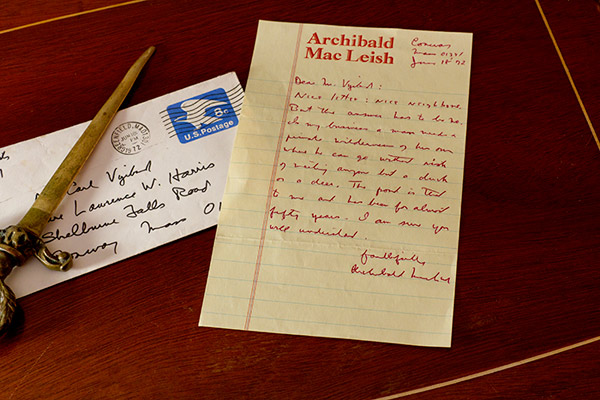 Archibald
Mac Leish
Conway
Mass 01341
June 18 72
Dear Mr. Vgibud:
Nice letter: nice neighbors.
But the answer has to be no.
In my business a man needs a
private wilderness of his own
where he can go without risk
of visiting anyone but a duck
or a deer. The pond is that
to me and has been for almost
fifty years. I am sure you
will understand.
faithfully
Archibald MacLeish
GREENFIELD, MASS.
PM
72
8c
U.S. Postage
Carl
Lawrence W. Harris
Shelburne Falls Road
Conway Mass 01